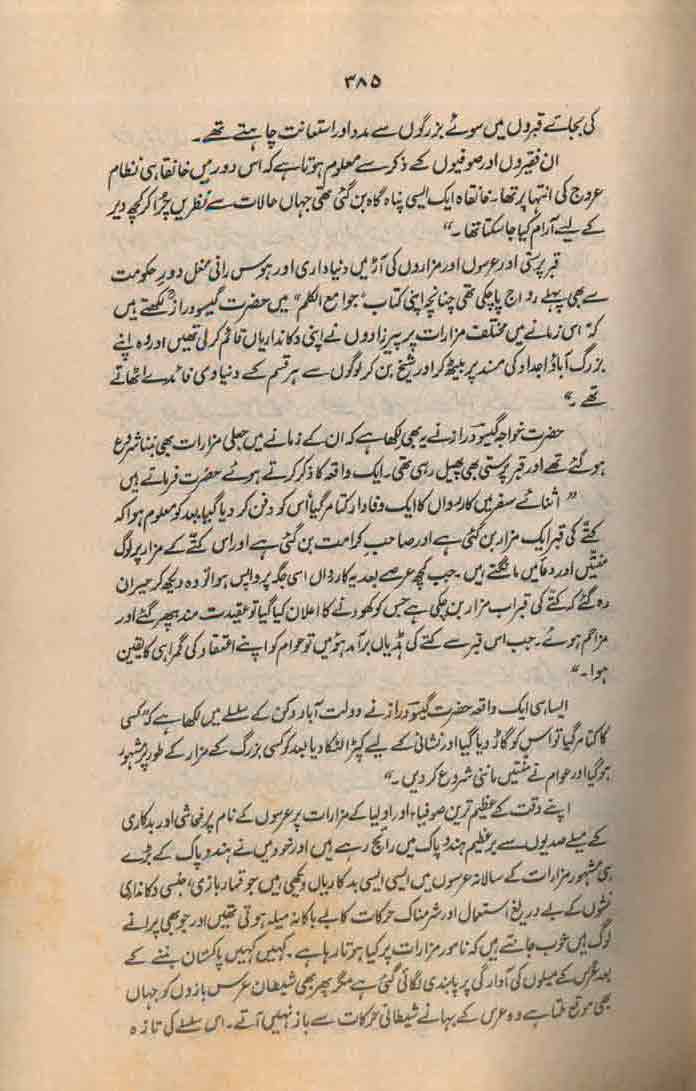 ۳۸۵
کی بجائے قبروں میں سوئے بزرگوں سے مدد اور استعانت چاہتے تھے۔
ان فقیروں اور صوفیوں کے ذکر سے معلوم ہوتا ہے کہ اس دور میں خانقاہی نظام
عروج کی انتہا پر تھا۔ خانقاہ ایک ایسی پناہ گاہ بن گئی تھی جہاں حالات سے نظریں چرا کر کچھ دیر
کے لیے آرام کیا جا سکتا تھا۔"
قبر پرستی اور عرسوں اور مزاروں کی آڑ میں دنیا داری اور ہوس رانی مغل دورِ حکومت
سے بھی پہلے رواج پا چکی تھی چنانچہ اپنی کتاب "جوامع الکلم" میں حضرت گیسو درازؒ لکھتے ہیں
کہ "اس زمانے میں مختلف مزارات پر پیرزادوں نے اپنی دکانداریاں قائم کر لی تھیں اور وہ اپنے
بزرگ آباؤ اجداد کی مسند پر بیٹھ کر اور شیخ بن کر لوگوں سے ہر قسم کے دنیاوی فائدے اٹھاتے
تھے۔"
حضرت خواجہ گیسو درازؒ نے یہ بھی لکھا ہے کہ ان کے زمانے میں جعلی مزارات بھی بننا شروع
ہو گئے تھے اور قبر پرستی بھی پھیل رہی تھی۔ ایک واقعہ کا ذکر کرتے ہوئے حضرت فرماتے ہیں
"اثنائے سفر میں کارواں کا ایک وفادار کتا مر گیا، اُس کو دفن کر دیا گیا، بعد کو معلوم ہوا کہ
کتّے کی قبر ایک مزار بن گئی ہے اور صاحبِ کرامت بن گئی ہے اور اس کتّے کے مزار پر لوگ
منّتیں اور دعائیں مانگتے ہیں۔ جب کچھ عرصے بعد یہ کارواں اسی جگہ پر واپس ہوا تو وہ دیکھ کر حیران
رہ گئے کہ کتّے کی قبر اب مزار بن چکی ہے جس کو کھودنے کا اعلان کیا گیا تو عقیدت مند بپھر گئے اور
مزاحم ہوئے۔ جب اس قبر سے کتے کی ہڈیاں برآمد ہوئیں تو عوام کو اپنے اعتقاد کی گمراہی کا یقین
ہوا۔"
ایسا ہی ایک واقعہ حضرت گیسو درازؒ نے دولت آباد دکن کے سلسلے میں لکھا ہے کہ "کسی
کا کتا مر گیا تو اس کو گاڑ دیا گیا اور نشانی کے لیے کپڑا لٹکا دیا بعد کو کسی بزرگ کے مزار کے طور پر مشہور
ہو گیا اور عوام نے منّتیں ماننی شروع کر دیں۔"
اپنے وقت کے عظیم ترین صوفیاء اور اولیا کے مزارات پر عرسوں کے نام پر فحاشی اور بدکاری
کے میلے صدیوں سے برعظیم ہندوپاک میں رائج رہے ہیں اور خود میں نے ہندوپاک کے بڑے
ہی مشہور مزارات کے سالانہ عرسوں میں ایسی ایسی بدکاریاں دیکھی ہیں جو قمار بازی، جنسی دکانداری
نشوں کے بے دریغ استعمال اور شرمناک حرکات کا بے باکانہ میلہ ہوتی تھیں اور جو بھی پرانے
لوگ ہیں خوب جانتے ہیں کہ نامور مزارات پر کیا ہوتا رہا ہے۔ کہیں کہیں پاکستان بننے کے
بعد عُرس کے میلوں کی آوارگی پر پابندی لگائی گئی ہے مگر پھر بھی شیطان عرس بازوں کو جہاں
بھی موقع ملتا ہے وہ عرس کے بہانے شیطانی حرکات سے باز نہیں آتے۔ اس سلسلے کی تازہ